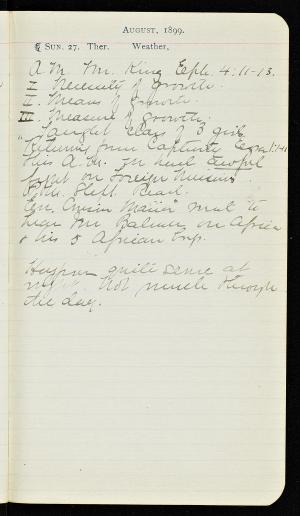 August, 1899.
Sun. 27. Ther. Weather,
A.M. Mr. King Eph. 4:11-13.
I Necessity of Growth.
II. Means of Growth.
III. Measure of Growth.
" Taught class of 3 girls
Returning from Captivity Ezra 1:1-11
this A.M.
on Foreign Missions
P.M. Slept. Read.
Eve. Cousin went to
hear Mr. on Africa
& his 5 African trip.
quite at
night. Not much through
the day.